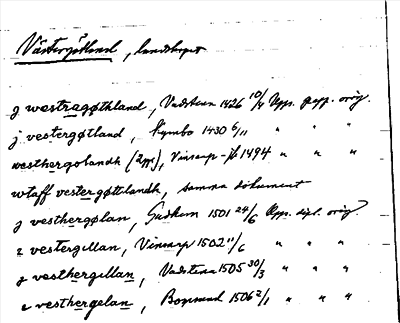 Västergötland, landskapet
j westragøthland, Vadstena 1426 10/4 Upps. papp. orig.
j vestergøtland, Kymbo 1430 6/11 " " "
westhergolandh (2 ggr), 1494 " " "
wtaff vestergøttlandh, samma dokument
j vesthergølan, Gudhem 1501 24/6 Upps. dipl. orig.
i vestergillan, Vinsarp 1502 11/6 " " "
j vesthergillan, Vadstena 1505 30/3 " " "
i vesthergelan, 1506 2/1 " " "